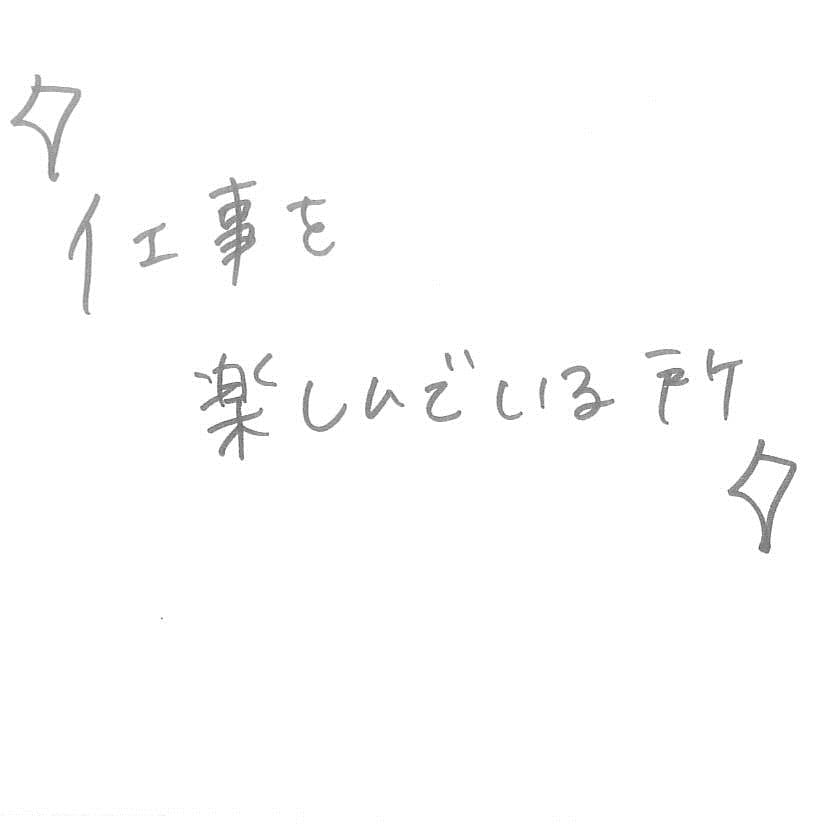 仕事を
楽しんでいる所